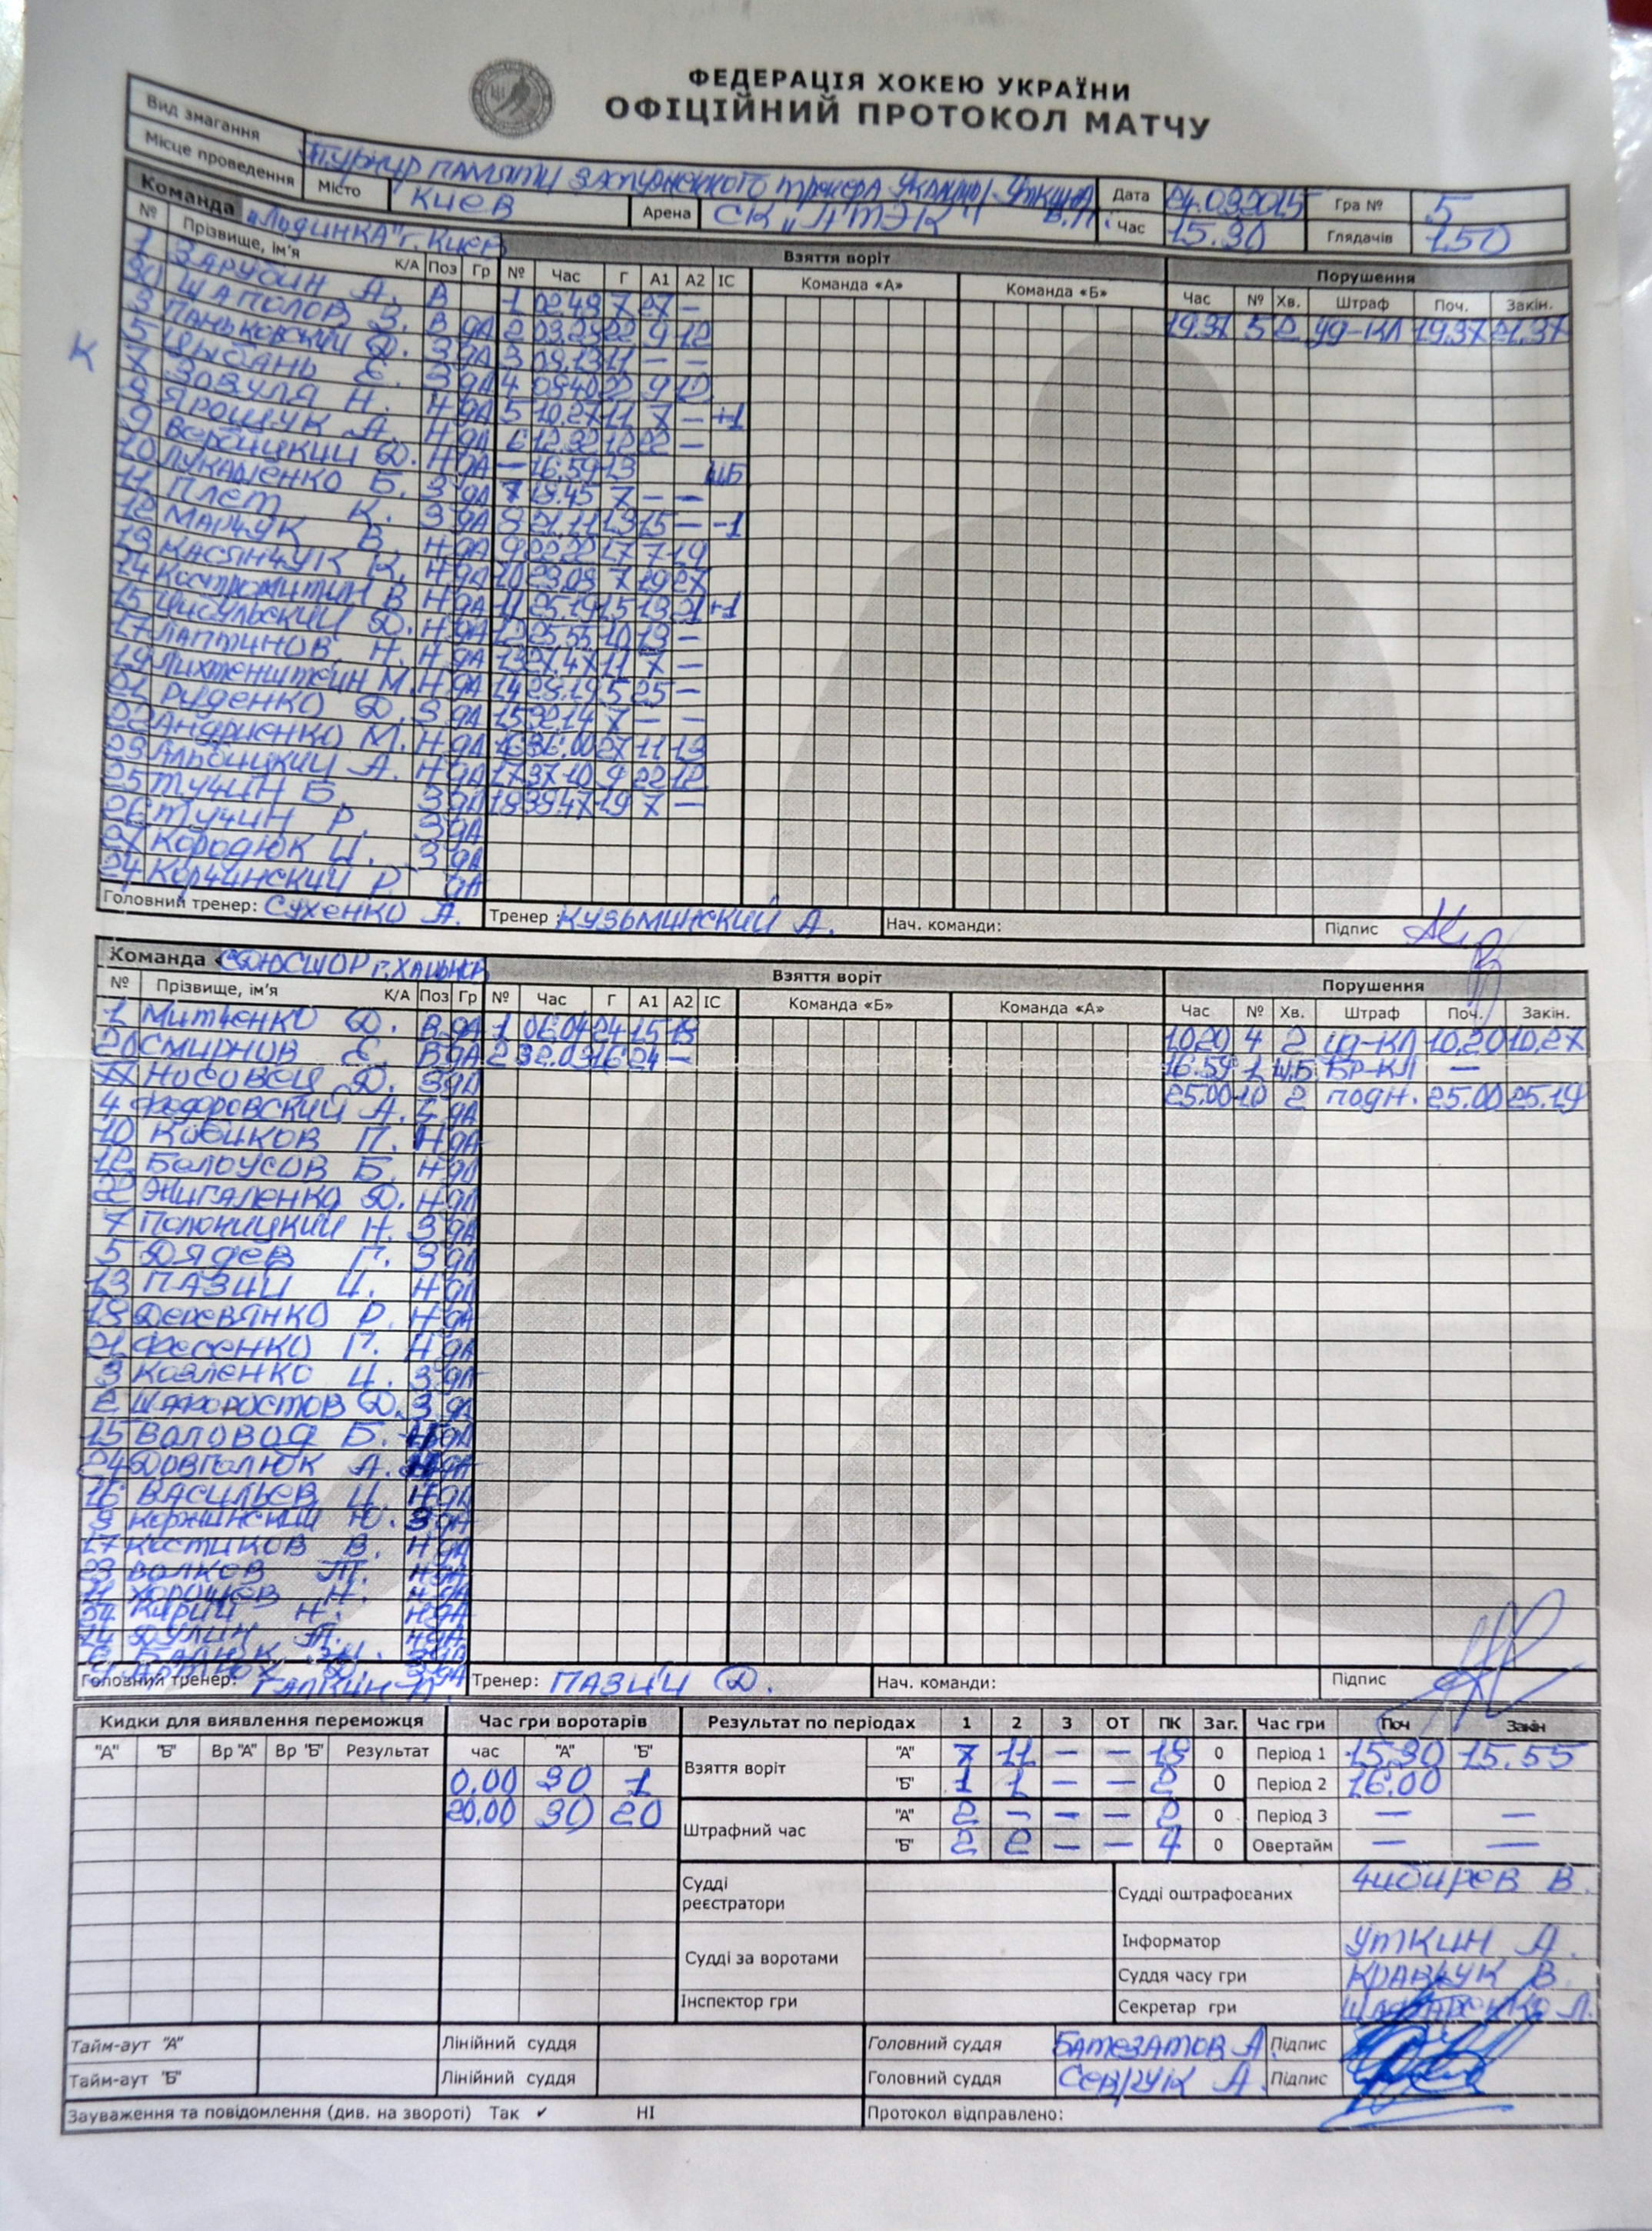 ФЕДЕРАЦІЯ ХОКЕЮ УКРАЇНИ
ОФІЦІЙНИЙ ПРОТОКОЛ МАТЧУ
Вид змагання Турнир памяти заслуженного тренера Украины Дата 24.03.2015 Гра № 5
Місце проведення Місто Киев Арена СК „АТЭК" Час 15.30 Глядачів 150
Команда „Льдинка" г. Киев Взяття воріт Порушення
№ Прізвище, ім'я К/А Поз Гр № Час Г А1 А2 ІС Команда «А» Команда «Б» Час № Хв. Штраф Поч. Закін.
1 Зарубин А. В 1 02.49 7 27 — 19.37 5 2 уд-КЛ 19.37 21.37
30 Шаполов З. В да 2 03.23 22 9 12
3 Паньковский Д. З да 3 08.13 11 — —
К 5 Цыбань Е. З да 4 09.40 22 9 12
7 Зозуля Н. Н да 5 10.27 11 7 — +1
8 Ярощук А. Н да 6 12.32 12 22 —
9 Вербицкий Д. Н да — 16.59 13 ШБ
10 Лукашенко Б. З да 7 19.45 7 — —
11 Плет К. З да 8 21.11 13 15 — -1
12 Марчук В. Н да 9 22.22 17 7 19
13 Касянчук К. Н да 10 23.09 7 19 27
14 Костромитин В Н да 11 25.19 15 13 21 +1
15 Цисульский Д. Н да 12 25.55 10 13 —
17 Лаптинов Н. Н да 13 27.47 11 7 —
19 Лихтенштейн М. Н да 14 28.19 5 25 —
21 Руденко Д. З да 15 32.14 7 — —
22 Андриенко М. Н да 16 36.00 27 11 13
23 Альбицкий А. Н да 17 37.10 9 22 12
25 Тучин Б. З да 18 39.47 19 7 —
26 Тучин Р. З да
27 Кородюк И. З да
24 Корчинский Р. да
Головний тренер: Сухенко А. Тренер Кузьминский А. Нач. команди: Підпис
Команда СДЮСШОР г. Харьков Взяття воріт Порушення
№ Прізвище, ім'я К/А Поз Гр № Час Г А1 А2 ІС Команда «Б» Команда «А» Час № Хв. Штраф Поч. Закін.
1 Митченко Д. В да 1 24 15 10.20 4 2 КЛ 10.20 10.27
20 Смирнов Е. В да 2 32.03 16 24 — 16.59 1 Ш.Б БР-КЛ —
77 Носовец Д. З да 25.00 10 2 подн. 25.00 25.19
4 Федоровский А. З да
10 Кабиков П. Н да
12 Белоусов Б. Н да
22 Жигаленко Д. Н да
7 Полоницкий Н. З да
5 Дядев Г. З да
13 Пазий И. Н да
18 Деревянко Р. Н да
21 Фесенко Г. Н да
3 Козленко И. З да
2 Шапоростов Д. З да
15 Воловод Б. да
24 Довголюк А. да
16 Васильев И. Н да
8 Коржинский Ю. З да
17 Костиков В. Н да
23 Волков Т. Н да
71 Хорошев Н. Н да
Кирий Н. Н да
Дулин Т. Н да
Головний тренер: Галкин Тренер: Пазий Д. Нач. команди: Підпис
Кидки для виявлення переможця Час гри воротарів Результат по періодах 1 2 3 ОТ ПК Заг. Час гри Поч Закін
"А" "Б" Вр "А" Вр "Б" Результат час "А" "Б" Взяття воріт "А" 7 11 — — 18 0 Період 1 15.30 15.55
0.00 30 1 "Б" 1 1 — — 2 0 Період 2 16.00
20.00 30 20 Штрафний час "А" 2 — — — 2 0 Період 3 — —
"Б" 2 2 — — 4 0 Овертайм — —
Судді реєстратори Судді оштрафованих Чибирев В.
Судді за воротами Інформатор Уткин А.
Суддя часу гри Кравчук В.
Інспектор гри Секретар гри
Тайм-аут "А" Лінійний суддя Головний суддя Батезатов А. Підпис
Тайм-аут "Б" Лінійний суддя Головний суддя Севрук А. Підпис
Зауваження та повідомлення (див. на звороті) Так ✓ НІ Протокол відправлено: